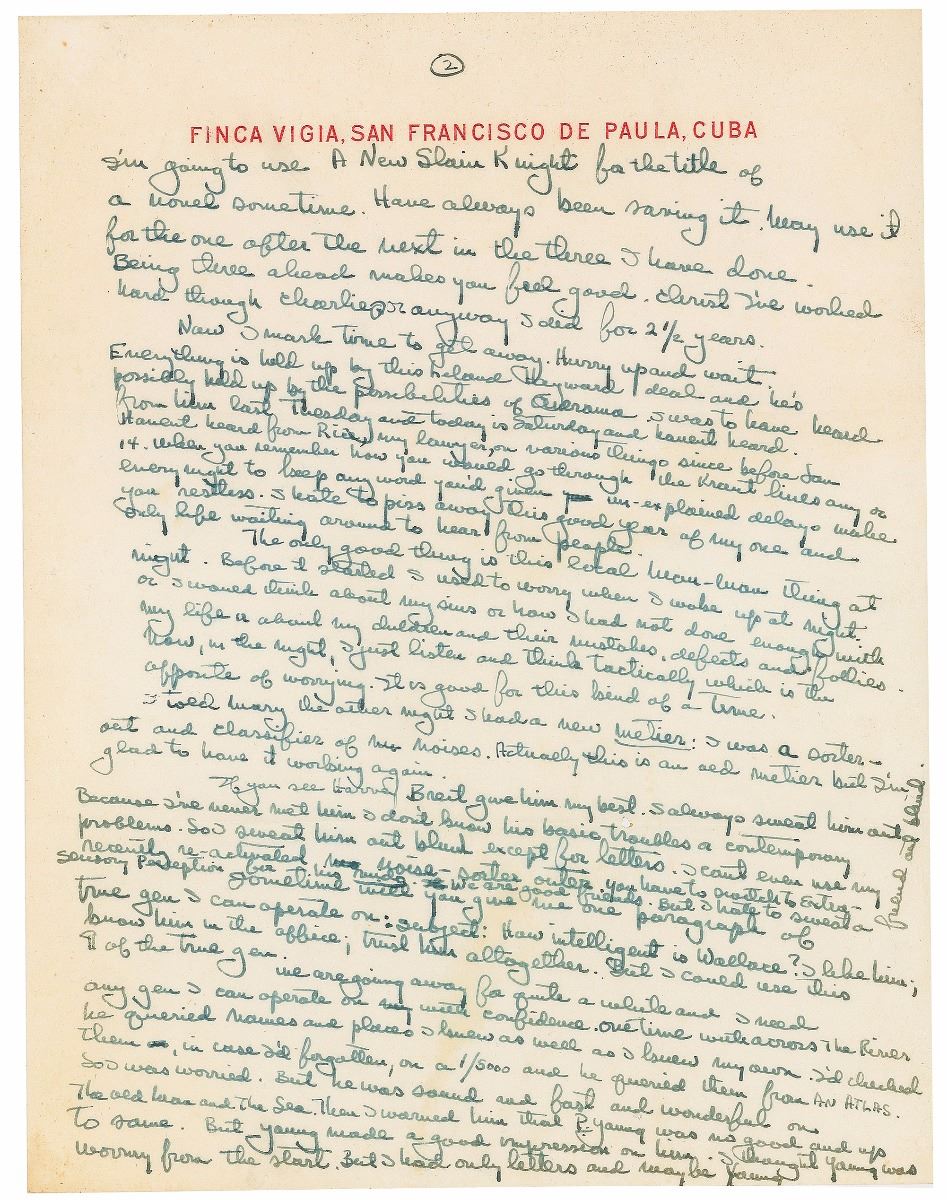 2
FINCA VIGIA, SAN FRANCISCO DE PAULA, CUBA
I'm going to use A New Slain Knight for the title of
a novel sometime. Have always been saving it. May use it
for the one after the next in the three I have done.
Being three ahead makes you feel good. Christ I've worked
hard though Charlie, or anyway I did for 2 1/2 years.
Now I mark time to get away. Hurry up and wait.
Everything is held up by this Leland Hayward deal and he's
possibly held up by the possibilities of Cinerama. I was to have heard
from him last Tuesday and today is Saturday and havent heard.
Havent heard from Rice, my lawyer, on various things since before Jan
14. When you remember how you would go through the Kraut lines any or
every night to keep any word you'd given un-explained delays make
you restless. I hate to piss away this good year of my one and
only life waiting around to hear from people.
The only good thing is this local Mau-Mau thing at
night. Before it started I used to worry when I woke up at night.
or I would think about my sins or how I had not done enough with
my life or about my children and their mistakes, defects and follies.
Now, in the night, I just listen and think tactically which is the
opposite of worrying. It is good for this kind of a time.
I told Mary the other night I had a new metier: I was a sorter-
out and classifier of noises. Actually this is an old metier but I'm
glad to have it working again.
If you see Harvey Breit give him my best. I always sweat him out
Because I've never met him I don't know his basic troubles or contemporary
problems. So I sweat him out blind except for letters. I cant even use my
recently re-activated noise-sorter outer. you have to switch to Extra-
Sensory Perception for him. We are good friends. But I hate to sweat a
friend out blind.
Sometime you give me one paragraph of
true gen I can operate on: subject: How intelligent is Wallace? I like him;
know him in the office; trust him altogether. But I could use this
¶ of the true gen.
We are going away for quite a while and I need
any gen I can operate on with confidence. One time with Across The River
he queried names and places I knew as well as I knew my own. I'd checked
them, in case I'd forgotten, on a 1/5000 and he queried them from AN ATLAS.
So I was worried. But he was sound and fast and wonderful on
The Old Man and The Sea. Then I warned him that P. Young was no good and up
to same. But Young made a good impression on him. I thought Young was
wormy from the start. But I had only letters and maybe Young